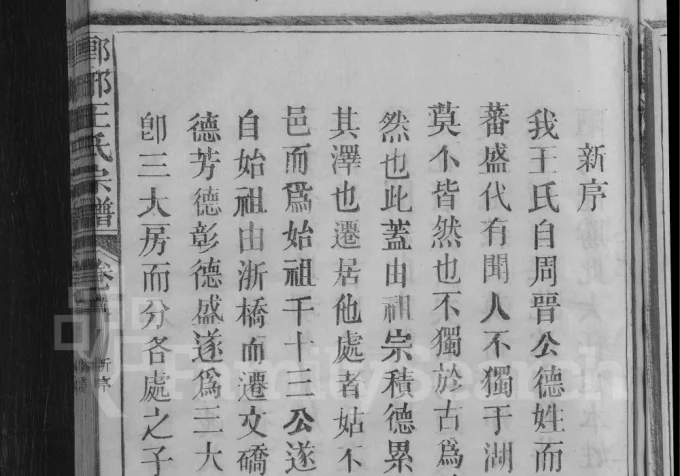 新序
我王氏自周晉公德姓而
蕃盛代有聞人不獨于湖
莫不皆然也不獨於古爲
然也此蓋由祖宗積德累
其澤也遷居他處者姑不
邑而爲始祖千十三公遂
自始祖由浙橋而遷文礄
德芳德彰德盛遂爲三大
卽三大房而分各處之子
郎邪王氏宗譜
卷首
新序
FamilySearch